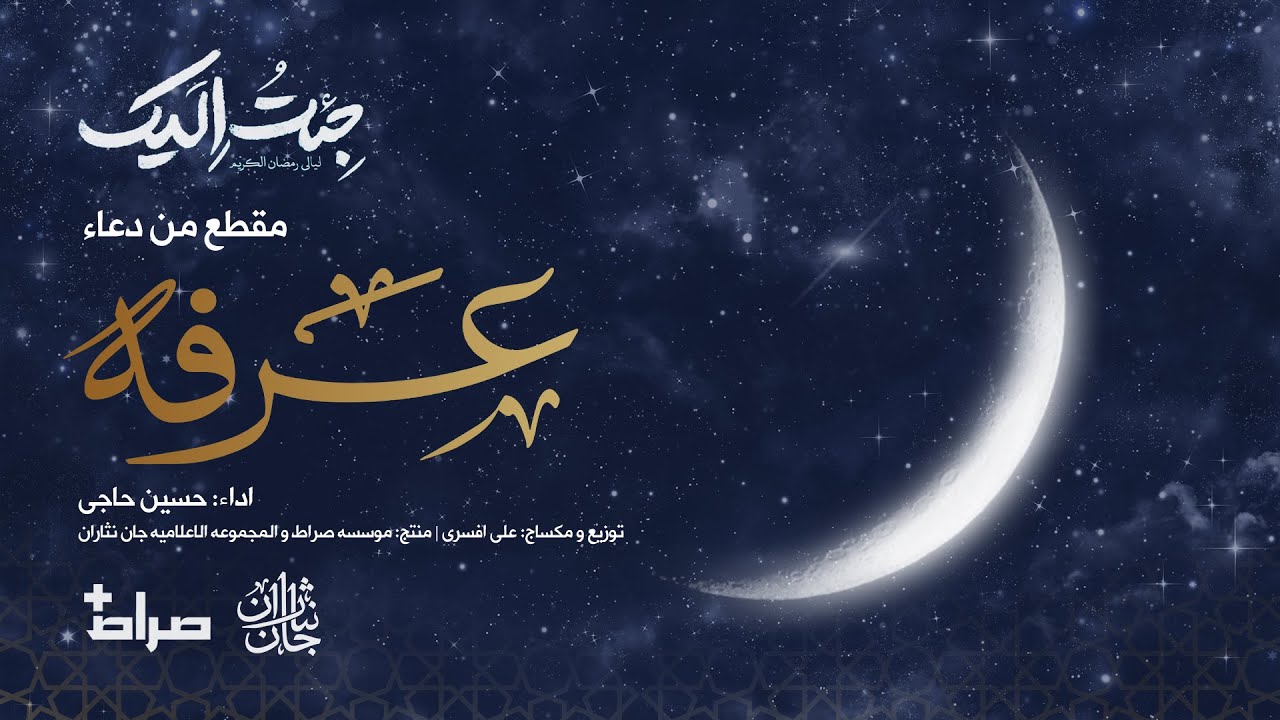 جِئتُ اِلَیک
لیالی رمضان الکریم
مقطع من دعاء
عرفه
اداء: حسین حاجی
توزیع و مکساج: علی افسری | منتج: موسسه صراط و المجموعه الاعلامیه جان نثاران
صراط+
جان نثاران